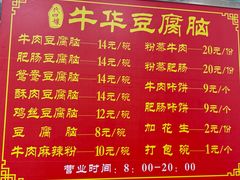 牛华豆腐脑
牛肉豆腐脑——14元/碗
肥肠豆腐脑——14元/碗
鸳鸯豆腐脑——14元/碗
酥肉豆腐脑——14元/碗
鸡丝豆腐脑——12元/碗
豆腐脑——8元/碗
牛肉麻辣粉——10元/碗
粉蒸牛肉——20元/份
粉蒸肥肠——20元/份
牛肉咔饼——9元/个
肥肠咔饼——9元/个
加花生——2元/份
打包碗——1元/个
营业时间:8:00-20:00